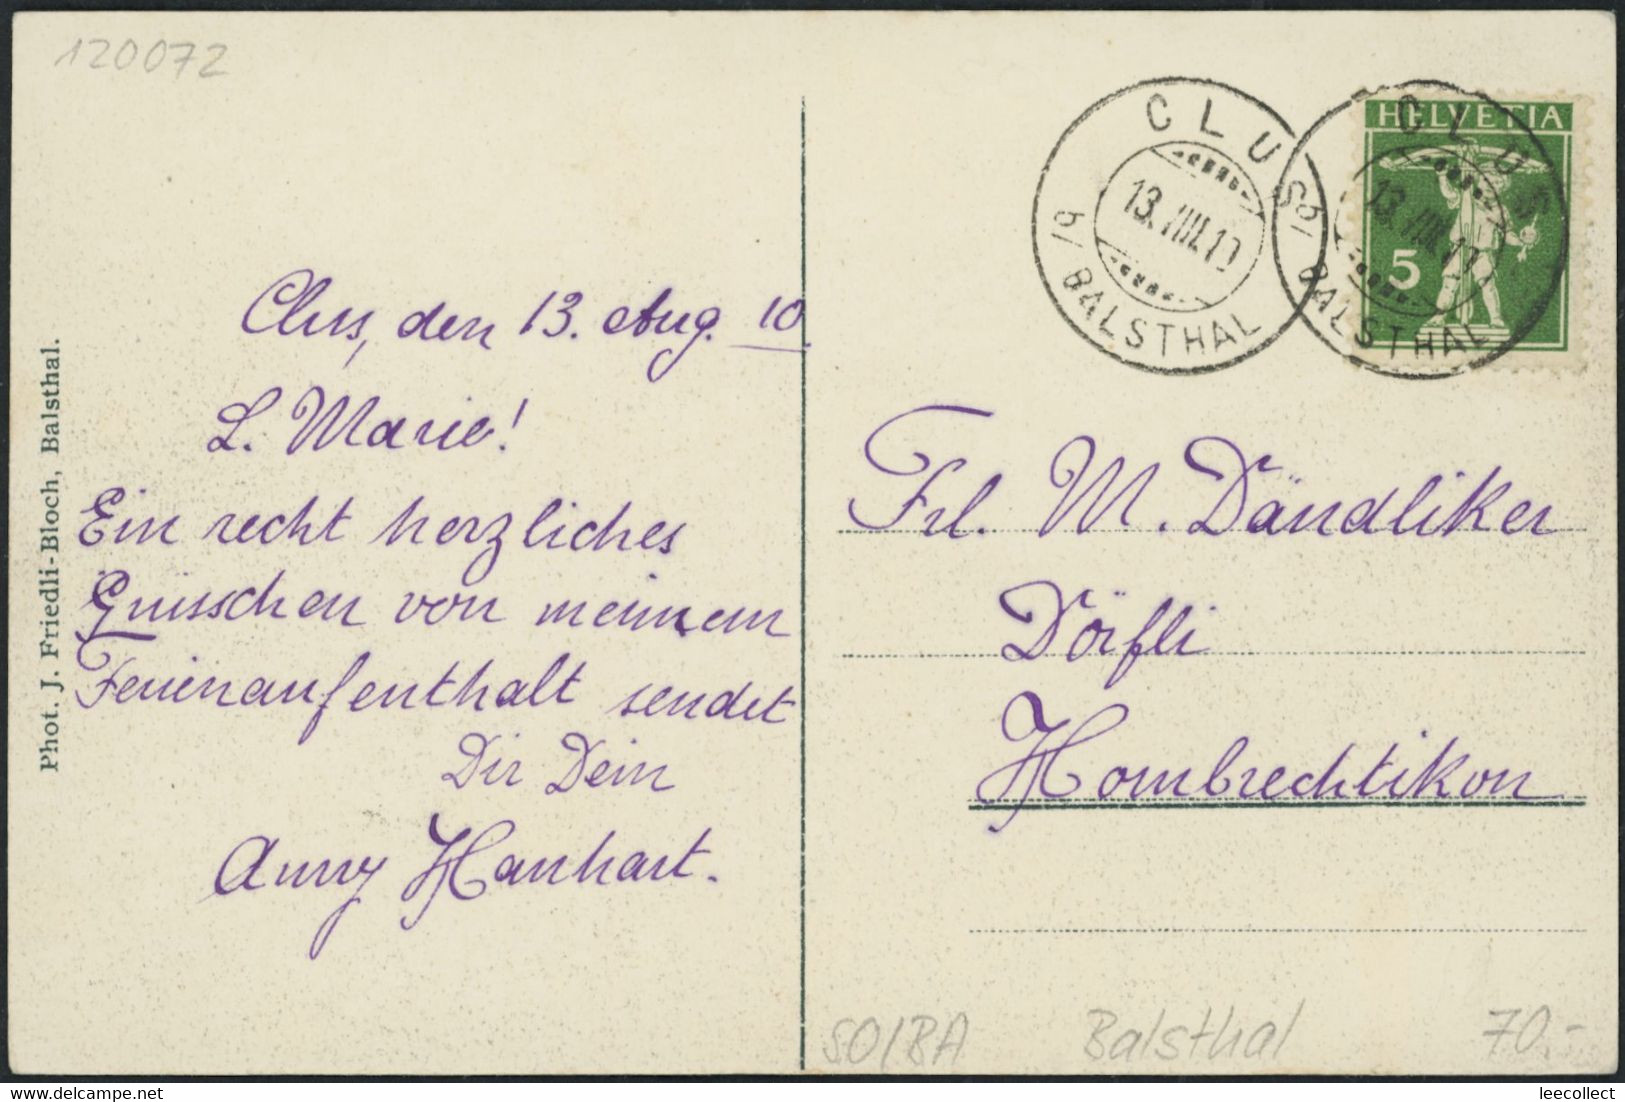 120072
Phot. J. Friedli-Bloch, Balsthal.
Clus, den 13. Aug. 10
L. Marie!
Ein recht herzliches
Grüsschen von meinem
Ferienaufenthalt sendet
Dir Dein
Anny Hanhart.
CLUS
13. VIII. 10
b/ BALSTHAL
CLUS
13. VIII. 10
b/ BALSTHAL
HELVETIA
5
Frl. M. Dändliker
Dörfli
Hombrechtikon
SO/BA Balsthal 70.-
leecollect